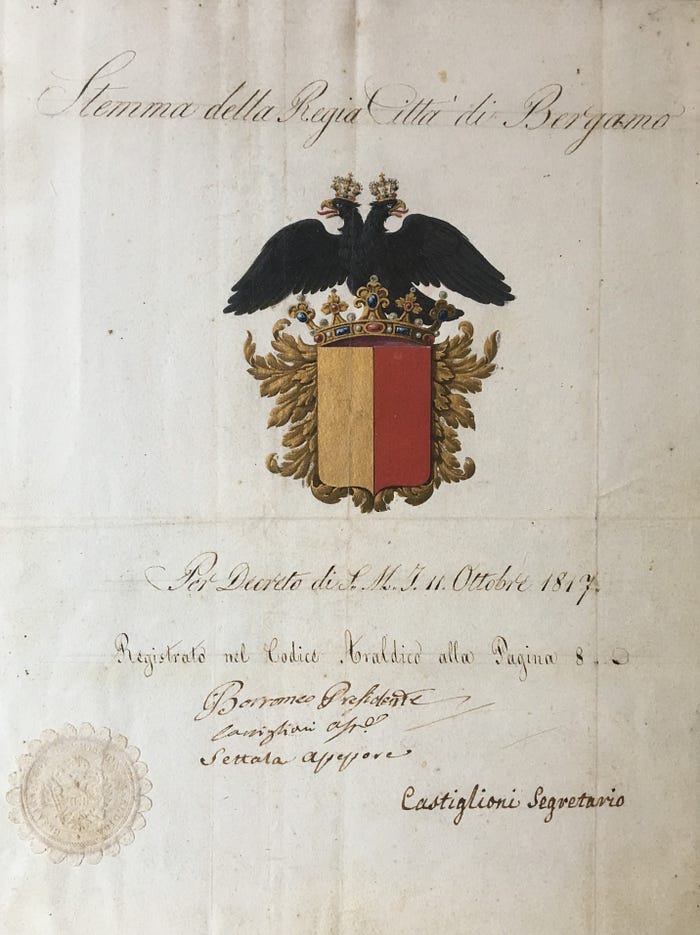 Stemma della Regia Città di Bergamo
Per Decreto di S. M. I. 11. Ottobre 1817.
Registrato nel Codice Araldico alla Pagina 8
Borromeo Presidente
Settala assessore
Castiglioni Segretario